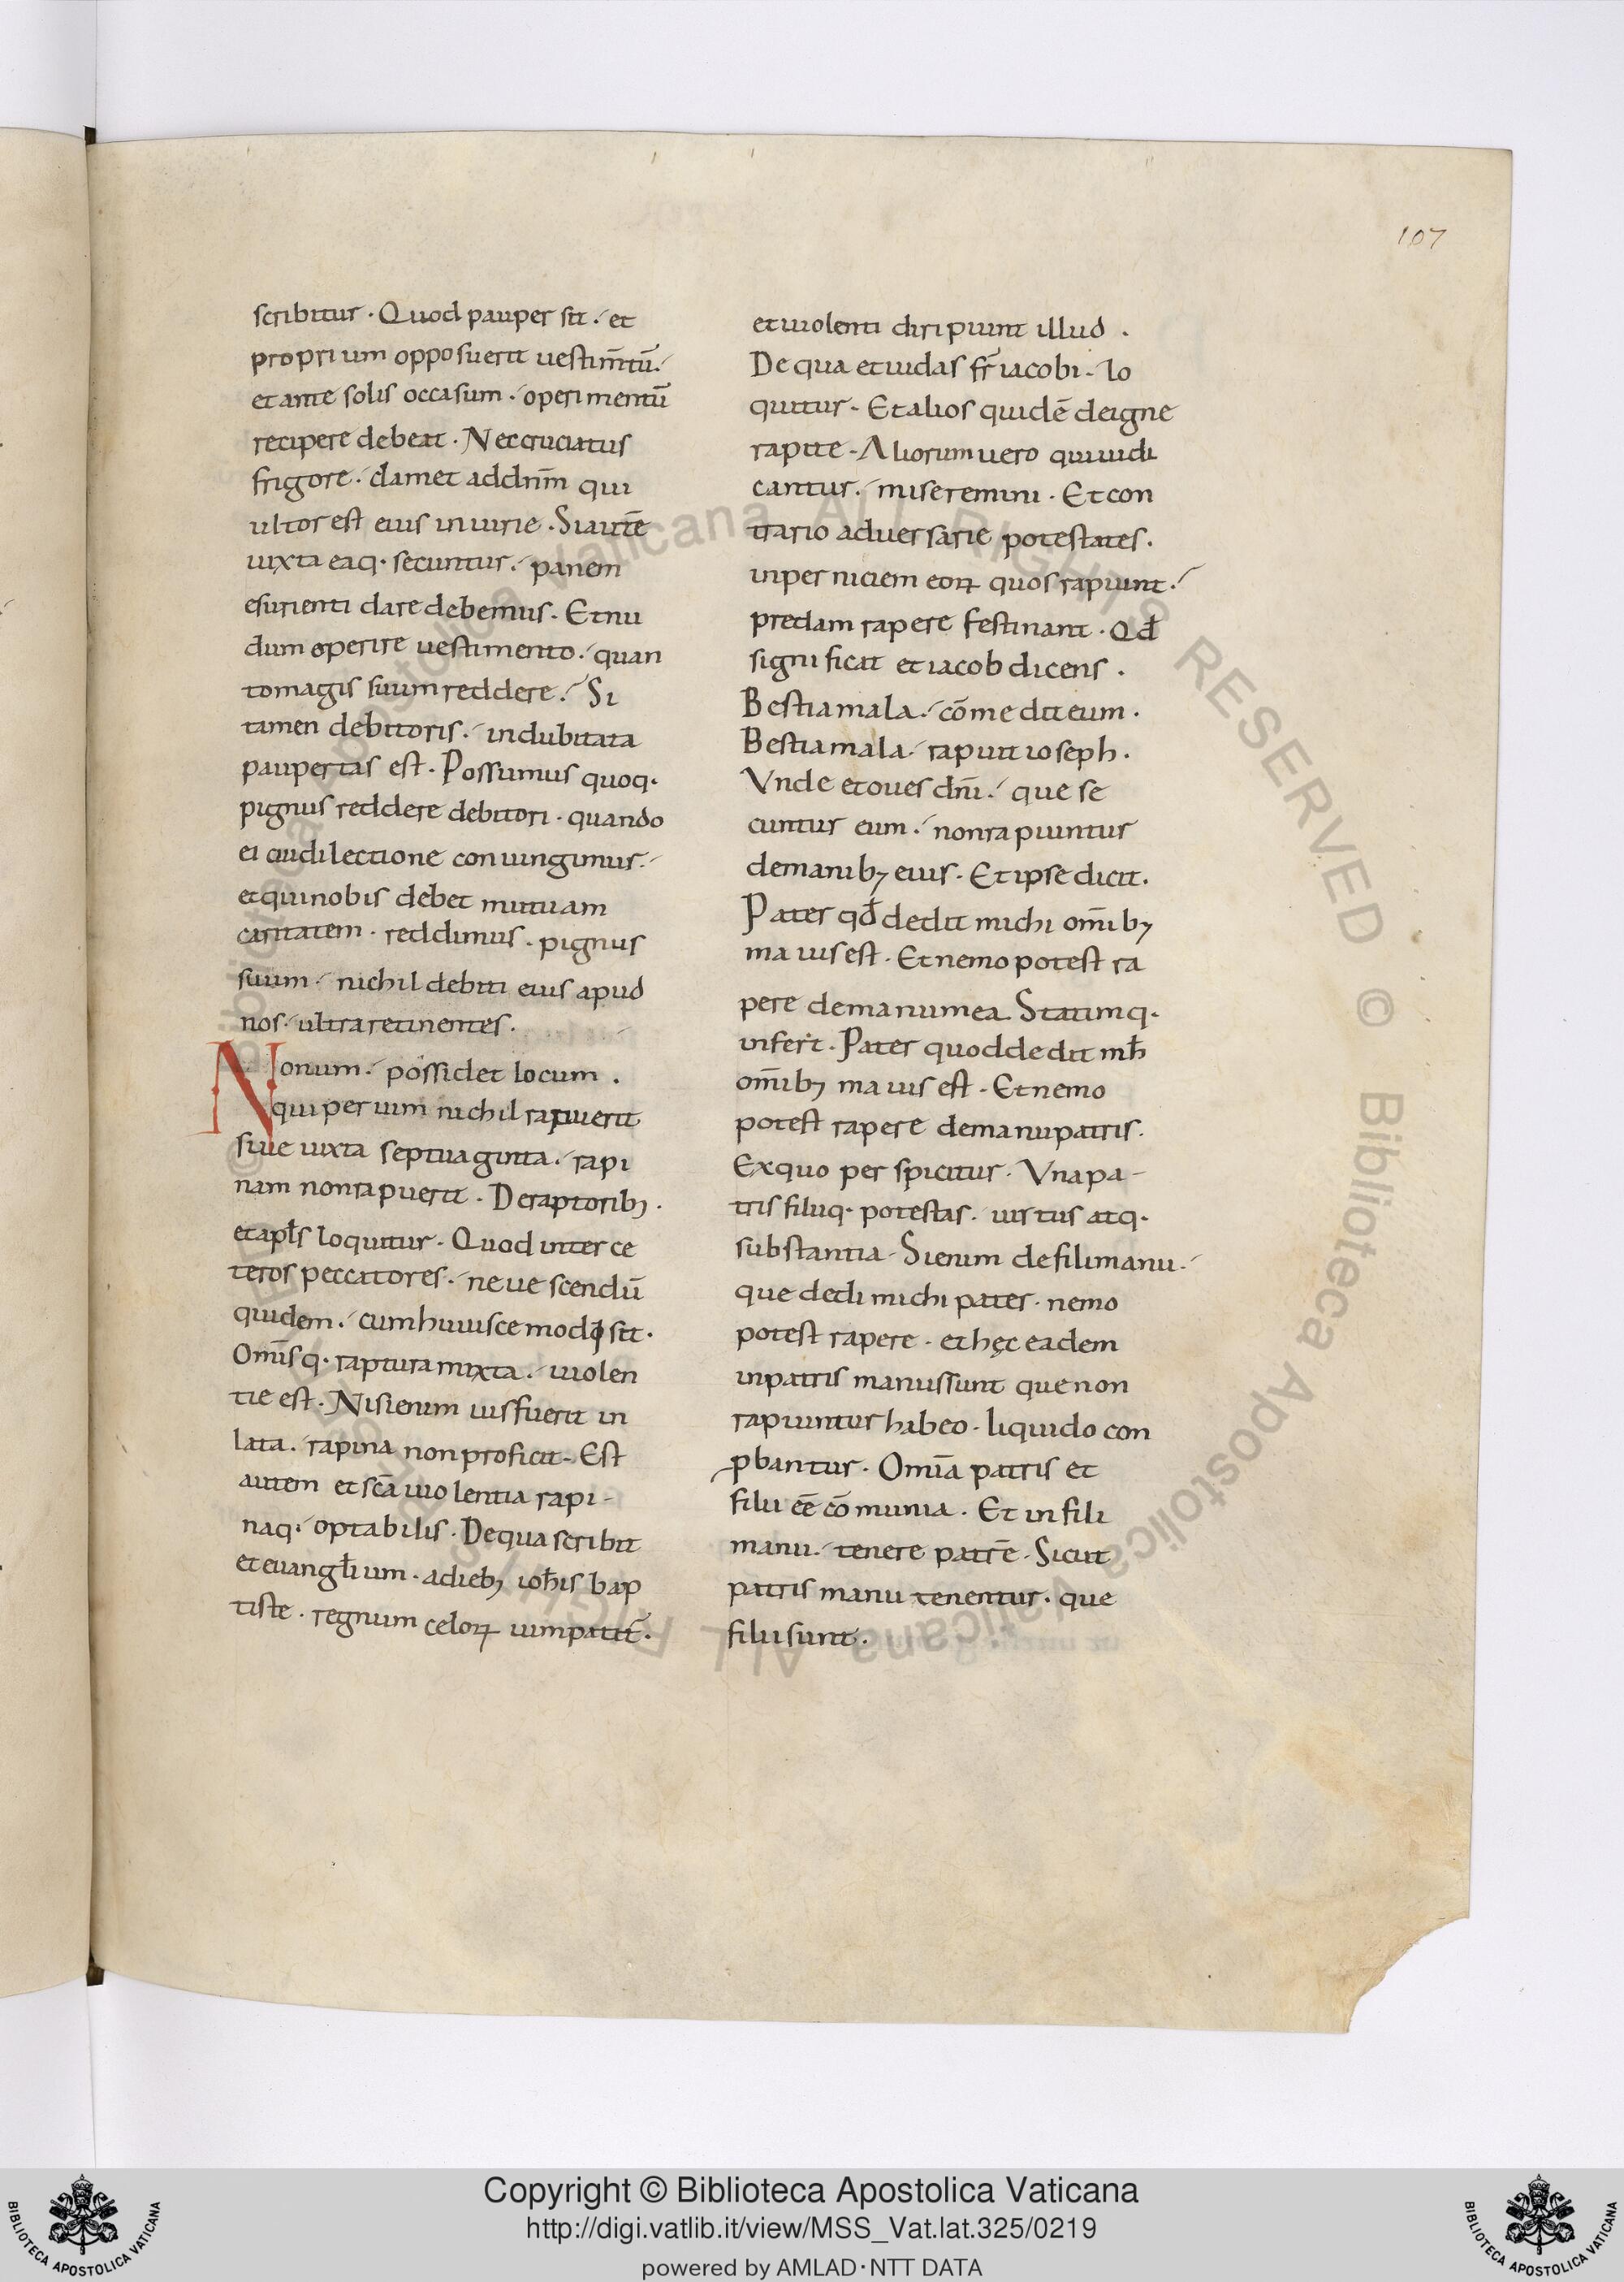 107
scribitur · Quod pauper sit ·́ et
proprium opposuerit uestim̅tu̅ ·́
et ante solis occasum · operimentu̅
recipere debeat · Nec cruciatus
frigore ·́ clamet ad dn̅m qui
ultor est eius iniurie · Si aute̅
iuxta ea q· secuntur ·́ panem
esurienti dare debemus · Et nu
dum operire uestimento ·́ quan
to magis suum reddere ·́ Si
tamen debitoris ·́ indubitata
paupertas est · Possumus quoq·
pignus reddere debitori · quando
ei cui dilectione coniungimur ·́
et qui nobis debet mutuam
caritatem · reddimus · pignus
suum ·́ nichil debiti eius apud
nos ·́ ultra retinentes ·
Nonum ·́ possidet locum ·
qui per uim nichil rapuerit
siue iuxta septuaginta ·́ rapi
nam non rapuerit · De raptorib; ·
et apl̅s loquitur · Quod inter ce
teros peccatores ·́ ne uescendu̅
quidem ·́ cum huiuscemodi sit ·
Om̅isq· raptura mixta ·́ uiolen
tie est · Nisi enim uis fuerit in
lata · rapina non proficit · Est
autem et sc̅a uiolentia rapi-
naq· optabilis · De qua scribit
et euangl̅ium · a dieb; ioh̅is bap
tiste · regnum celoꝝ uim patit̅ ·
et uiolenti diripiunt illud ·
De qua et iudas fr̅ iacobi · lo
quitur · Et alios quide̅ de igne
rapite · Aliorum uero qui iudi
cantur ·́ miseremini · Et con
trario aduersarie potestates ·
in perniciem eoꝝ quos rapiunt ·́
predam rapere festinant · Qd̅
significat et iacob dicens ·
Bestia mala ·́ co̅medit eum ·
Bestia mala ·́ rapuit ioseph ·
Vnde et oues dn̅i ·́ que se
cuntur eum ·́ non rapiuntur
de manib; eius · Et ipse dicit ·
Pater qd̅ dedit michi om̅ib;
maius est · Et nemo potest ra
pere de manu mea. Statimq·
infert · Pater quod dedit mh̅
om̅ib; maius est · Et nemo
potest rapere de manu patris ·
Ex quo perspicitur · Vna pa-
tris filiiq· potestas · uirtus atq·
substantia · Si enim de filii manu ·́
que dedi michi pater · nemo
potest rapere · et hęc eadem
in patris manus sunt que non
rapiuntur habeo · liquido con
ꝓbantur · Om̅ia patris et
filii ee̅ co̅munia · Et in fili
manu ·́ tenere patre̅ · Sicut
patris manu tenentur · que
filii sunt ·
Copyright © Biblioteca Apostolica Vaticana
http://digi.vatlib.it/view/MSS_Vat.lat.325/0219
powered by AMLAD·NTT DATA
BIBLIOTECA APOSTOLICA VATICANA
BIBLIOTECA APOSTOLICA VATICANA